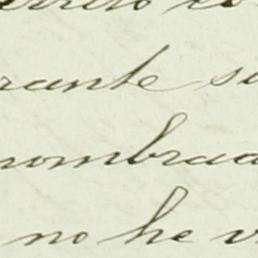 rante su
nombrad
no he v